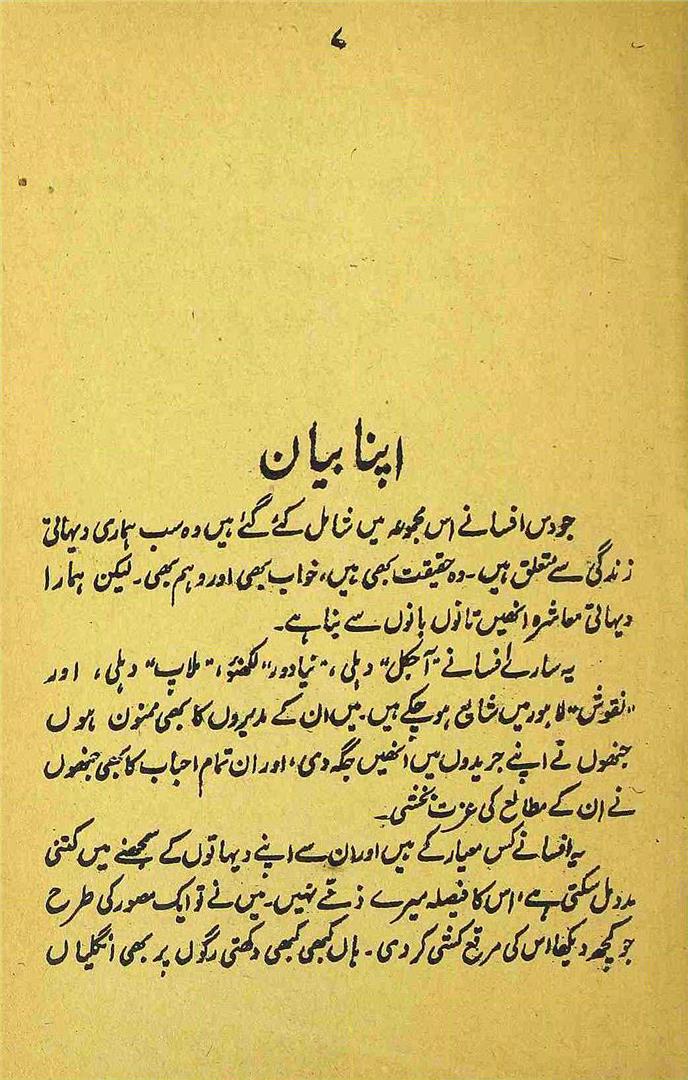 ۷
اپنا بیان
جو دس افسانے اس مجموعہ میں شامل کئے گئے ہیں وہ سب ہماری دیہاتی
زندگی سے متعلق ہیں۔ وہ حقیقت بھی ہیں، خواب بھی اور وہم بھی۔ لیکن ہمارا
دیہاتی معاشرہ انھیں تانوں بانوں سے بنا ہے۔
یہ سارے افسانے "آجکل" دہلی، "نیا دور" لکھنؤ، "ملاپ" دہلی، اور
"نقوش" لاہور میں شایع ہو چکے ہیں۔ میں ان کے مدیروں کا بھی ممنون ہوں
جنھوں نے اپنے جریدوں میں انھیں جگہ دی، اور ان تمام احباب کا بھی جنھوں
نے ان کے مطالع کی عزت بخشی۔
یہ افسانے کس معیار کے ہیں اور ان سے اپنے دیہاتوں کے سمجھنے میں کتنی
مدد مل سکتی ہے، اس کا فیصلہ میرے ذمّے نہیں۔ میں نے تو ایک مصور کی طرح
جو کچھ دیکھا اس کی مرقع کشی کر دی۔ ہاں کبھی کبھی دکھتی رگوں پر بھی انگلیاں